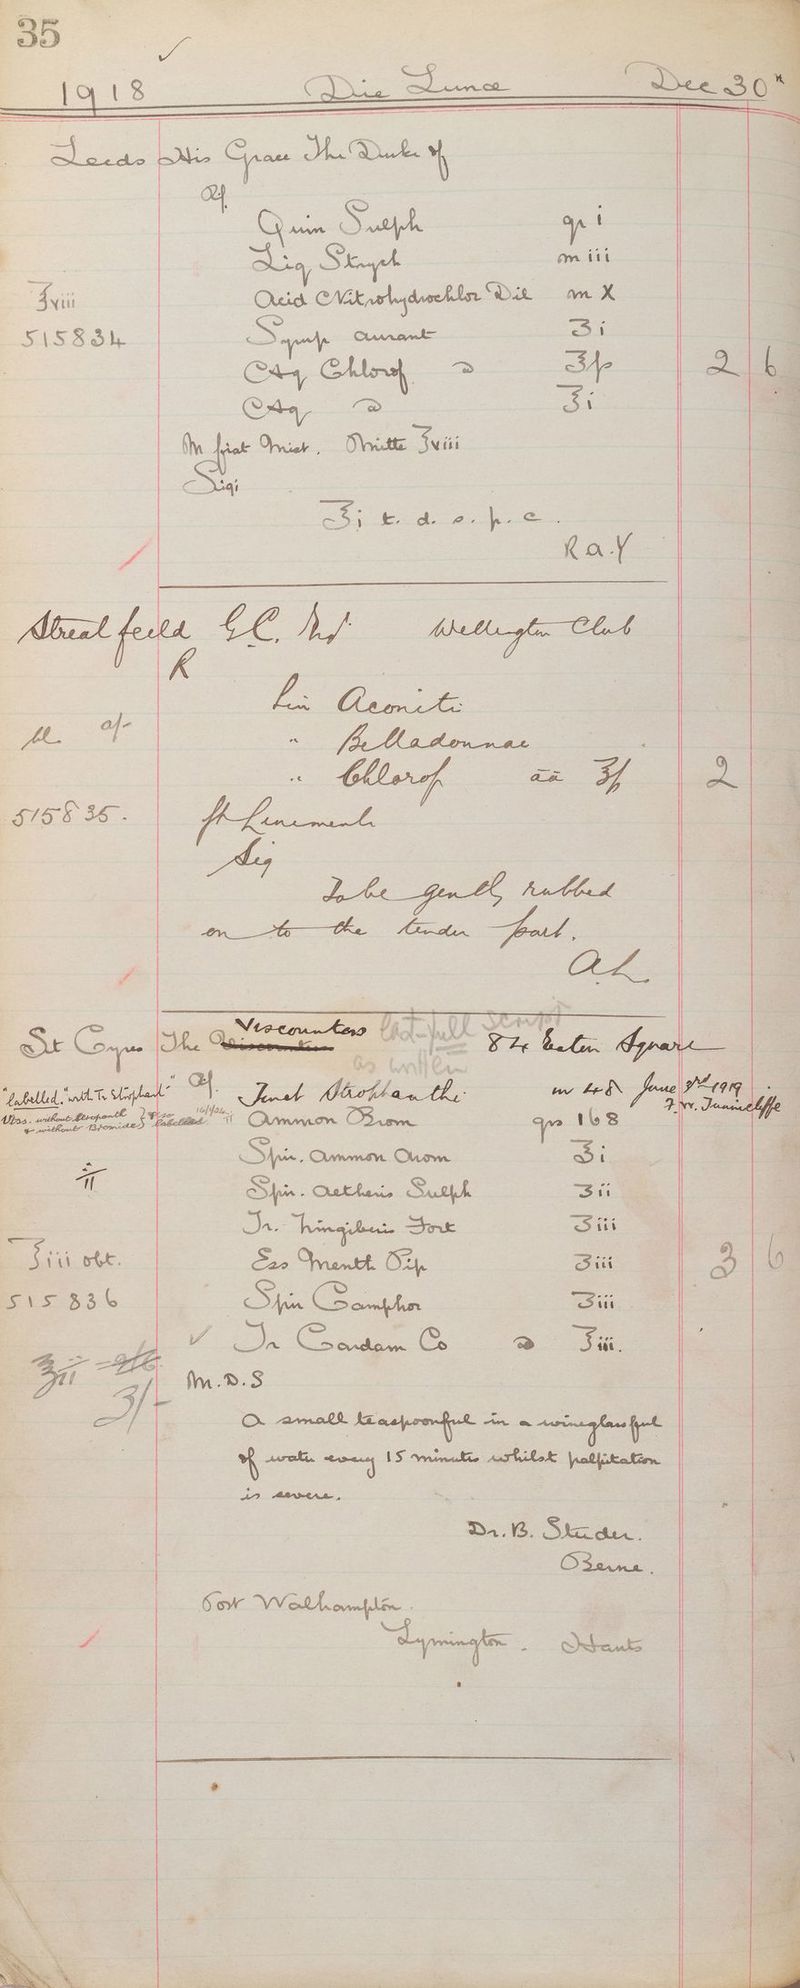 35
1918 Die Lunae Dec 30th
Leeds His Grace The Duke of
Rf.
Quin Sulph gr i
Liq Strych m iii
℥viii Acid Nitrohydrochlor Dil m X
515834 Syrup aurant ʒi
Aq Chlorof ʒſs 2 6
Aq ad ℥i
M fiat Mist. Mitte ℥viii
Sig:
℥i t. d. s. p. c.
R.a.Y
Streatfeild G.C. Wellington Club
R
Lin Aconiti
" Belladonnae
" Chlorof āā ℥ſs 2
515835. ft Liniment
Sig
To be gently rubbed
on to the tender part.
A.L.
St Cyres The Viscountess 84 Eaton Square
last full script
as written
"labelled." with Tr Strophanth" Rf. Tinct Strophanthi m 48 June 3rd 1919
F. W. Tunnicliffe
without Strophanth
& without Bromide labelled
Ammon Brom grs 168
Spir. Ammon Arom ℥i
Spir. Aetheris Sulph ʒii
Tr. Zingiberis Fort ʒiii
℥iii obt. Ess Menth Pip ʒiii 3 6
515836 Spir Camphor ʒiii
Tr Cardam Co ad ℥iii.
℥ii
3/-
M.D.S
A small teaspoonful in a wineglassful
of water every 15 minutes whilst palpitation
is severe.
Dr. B. Studer.
Berne.
Post Walhampton.
Lymington. Hants